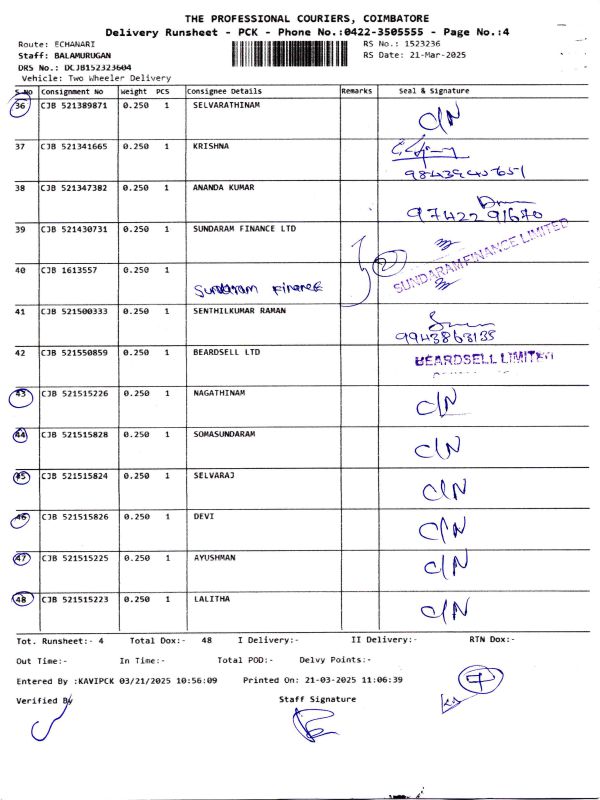 THE PROFESSIONAL COURIERS, COIMBATORE
Delivery Runsheet - PCK - Phone No.:0422-3505555 - Page No.:4
Route: ECHANARI RS No.: 1523236
Staff: BALAMURUGAN RS Date: 21-Mar-2025
DRS No.: DCJB152323604
Vehicle: Two Wheeler Delivery
S No Consignment No Weight PCS Consignee Details Remarks Seal & Signature
36 CJB 521389871 0.250 1 SELVARATHINAM C/N
37 CJB 521341665 0.250 1 KRISHNA
38 CJB 521347382 0.250 1 ANANDA KUMAR
97422 91670
39 CJB 521430731 0.250 1 SUNDARAM FINANCE LTD
SUNDARAM FINANCE LIMITED
40 CJB 1613557 0.250 1 2
Sundaram Finance
41 CJB 500333 0.250 1 SENTHILKUMAR RAMAN
9943868135
42 CJB 521550859 0.250 1 BEARDSELL LTD BEARDSELL LIMITED
43 CJB 521515226 0.250 1 NAGATHINAM C/N
44 CJB 521515828 0.250 1 SOMASUNDARAM C/N
45 CJB 521515824 0.250 1 SELVARAJ C/N
46 CJB 521515826 0.250 1 DEVI C/N
47 CJB 521515225 0.250 1 AYUSHMAN C/N
48 CJB 521515223 0.250 1 LALITHA C/N
Tot. Runsheet:- 4 Total Dox:- 48 I Delivery:- II Delivery:- RTN Dox:-
Out Time:- In Time:- Total POD:- Delvy Points:-
Entered By :KAVIPCK 03/21/2025 10:56:09 Printed On: 21-03-2025 11:06:39 7
Verified By Staff Signature